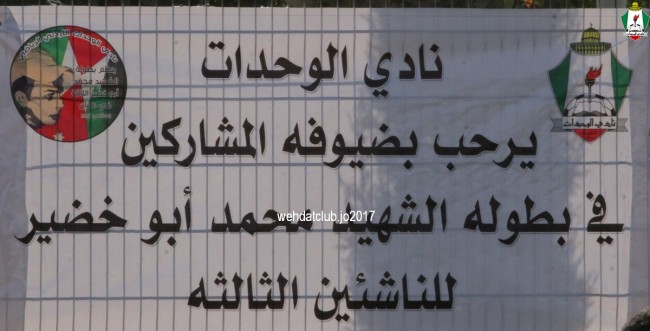 نادي الوحدات
يرحب بضيوفه المشاركين
في بطوله الشهيد محمد أبو خضير
للناشئين الثالثه
wehdatclub.jo2017
نادي الوحدات